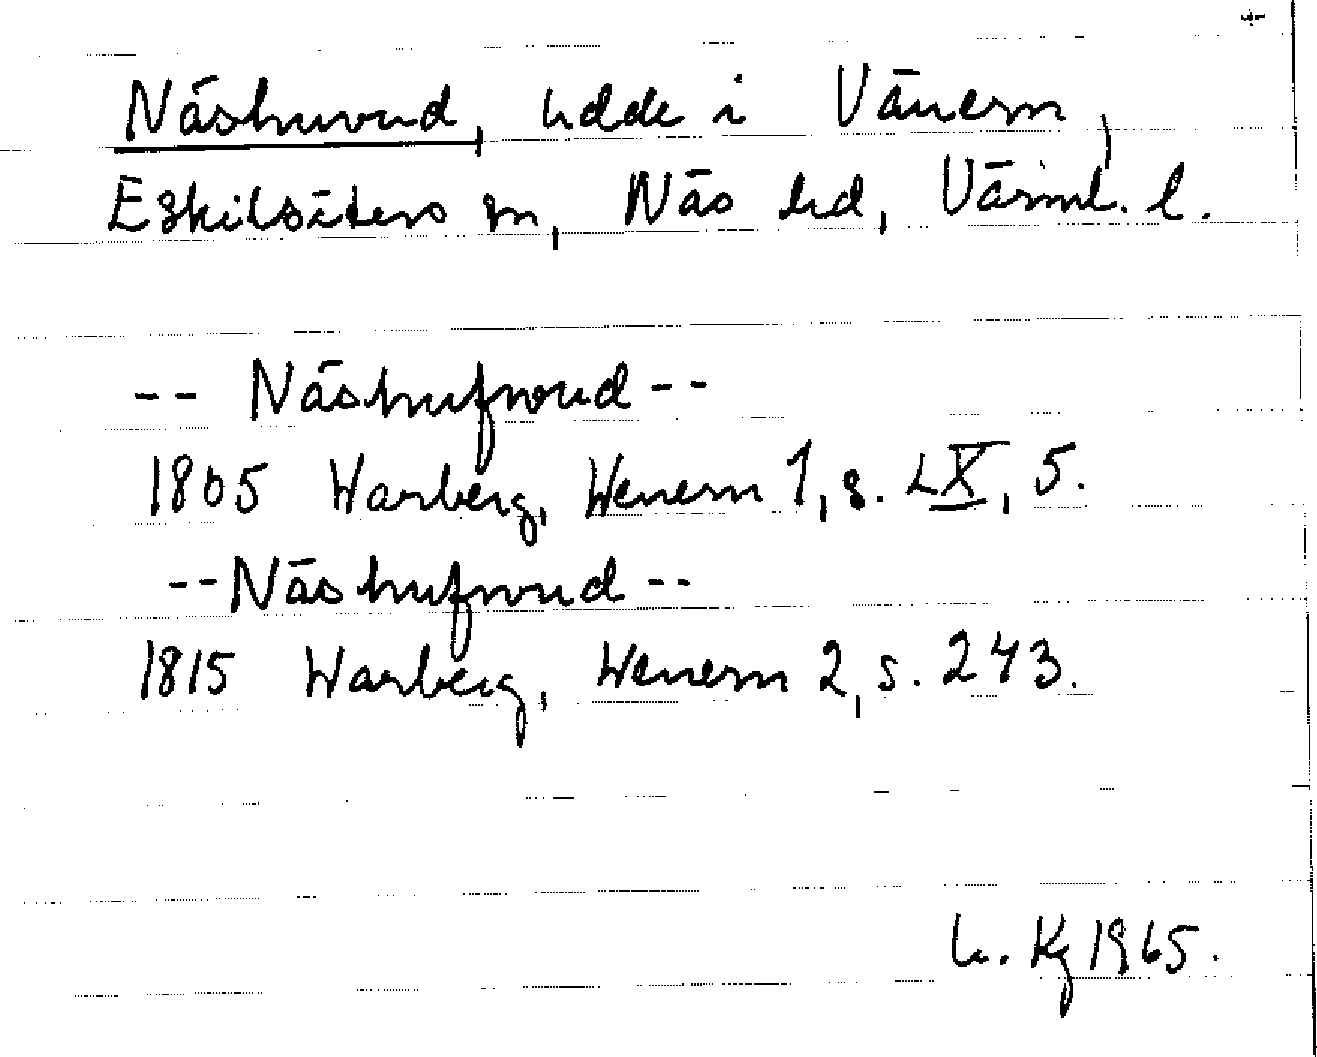 Näshuvud, udde i Vänern,
Eskilsäters sn, Näs hd, Värml. l.
-- Näshufwud --
1805 Warberg, Wenern 1, s. LX, 5.
-- Näshufwud --
1815 Warberg, Wenern 2, s. 243.
1965.